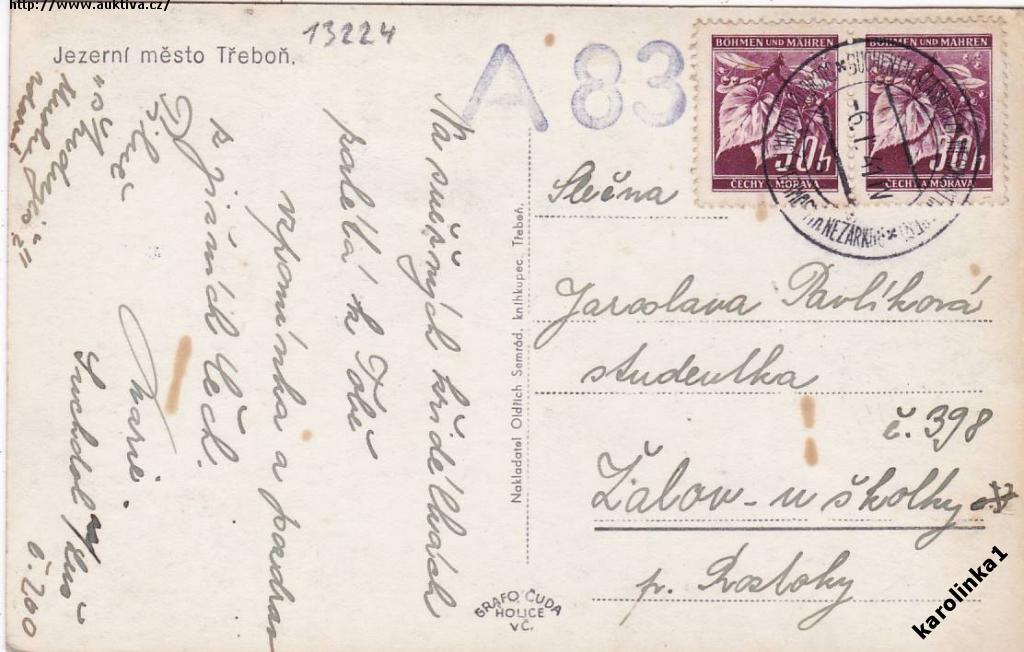 http://www.auktiva.cz/
13224
Jezerní město Třeboň.
A 83
BÖHMEN UND MÄHREN
50h
ČECHY A MORAVA
BÖHMEN UND MÄHREN
50h
ČECHY A MORAVA
-6.1.41
NEŽÁRKOU
Na sněžných křidélkách
zaletá k Tobě
vzpomínka a pozdrav
z jižních Čech.
Marie.
Suchdol n/Luž
č. 200
Nakladatel Oldřich Semrád, knihkupec, Třeboň.
GRAFO ČUDA
HOLICE
V Č.
Slečna
Jaroslava Pavlíková
studentka
č. 398
Žalov - u školky
p. Roztoky
karolinka1